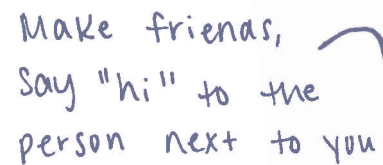 Make friends,
Say "hi" to the
person next to you